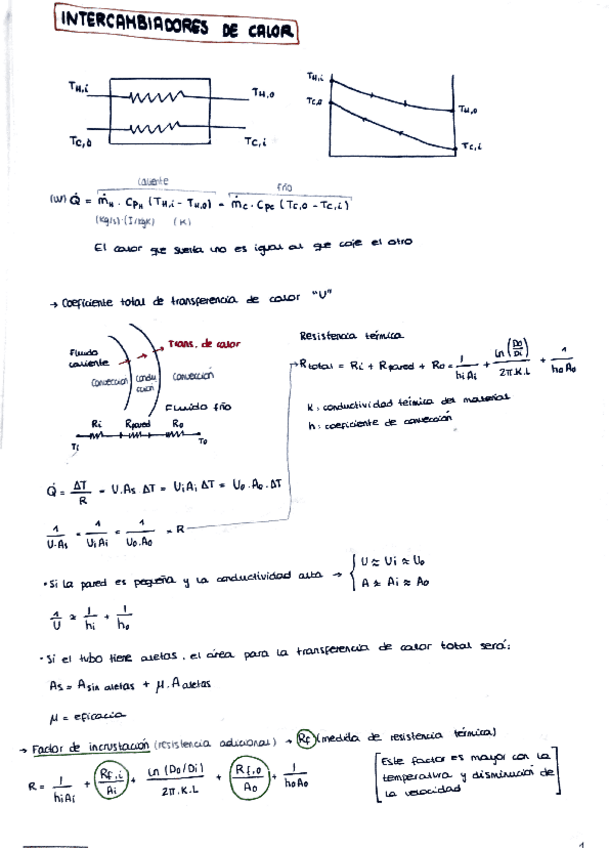 INTERCAMBIADORES DE CALOR
T_H,i
T_H,o
T_C,o
T_C,i
T_H,i
T_C,o
T_H,o
T_C,i
caliente
frío
(W) Q̇ = ṁ_H · Cp_H (T_H,i - T_H,o) = ṁ_C · Cp_C (T_C,o - T_C,i)
(kg/s)·(J/kgK) (K)
El calor que suelta uno es igual al que coje el otro
→ Coeficiente total de transferencia de calor "U"
Fluido caliente
Trans. de calor
Convección
Conducción
Convección
Fluido frío
Ri Rpared Ro
Ti To
Resistencia térmica
R total = Ri + Rpared + Ro = 1/(hi Ai) + ln(Do/Di)/(2π.K.L) + 1/(ho Ao)
K: conductividad térmica del material
h: coeficiente de convección
Q̇ = ΔT/R = U.As ΔT = Ui Ai ΔT = Uo. Ao. ΔT
1/(U.As) = 1/(Ui Ai) = 1/(Uo.Ao) = R
· Si la pared es pequeña y la conductividad alta → { U ≈ Ui ≈ Uo
A ≈ Ai ≈ Ao
1/U ≈ 1/hi + 1/ho
· Si el tubo tiene aletas, el área para la transferencia de calor total será:
As = A sin aletas + μ. A aletas
μ = eficacia
→ Factor de incrustación (resistencia adicional) → Rf (medida de resistencia térmica)
R = 1/(hi Ai) + Rf,i/Ai + ln (Do/Di)/(2π.K.L) + Rf,o/Ao + 1/(ho Ao)
[Este factor es mayor con la
temperatura y disminución de
la velocidad]
1